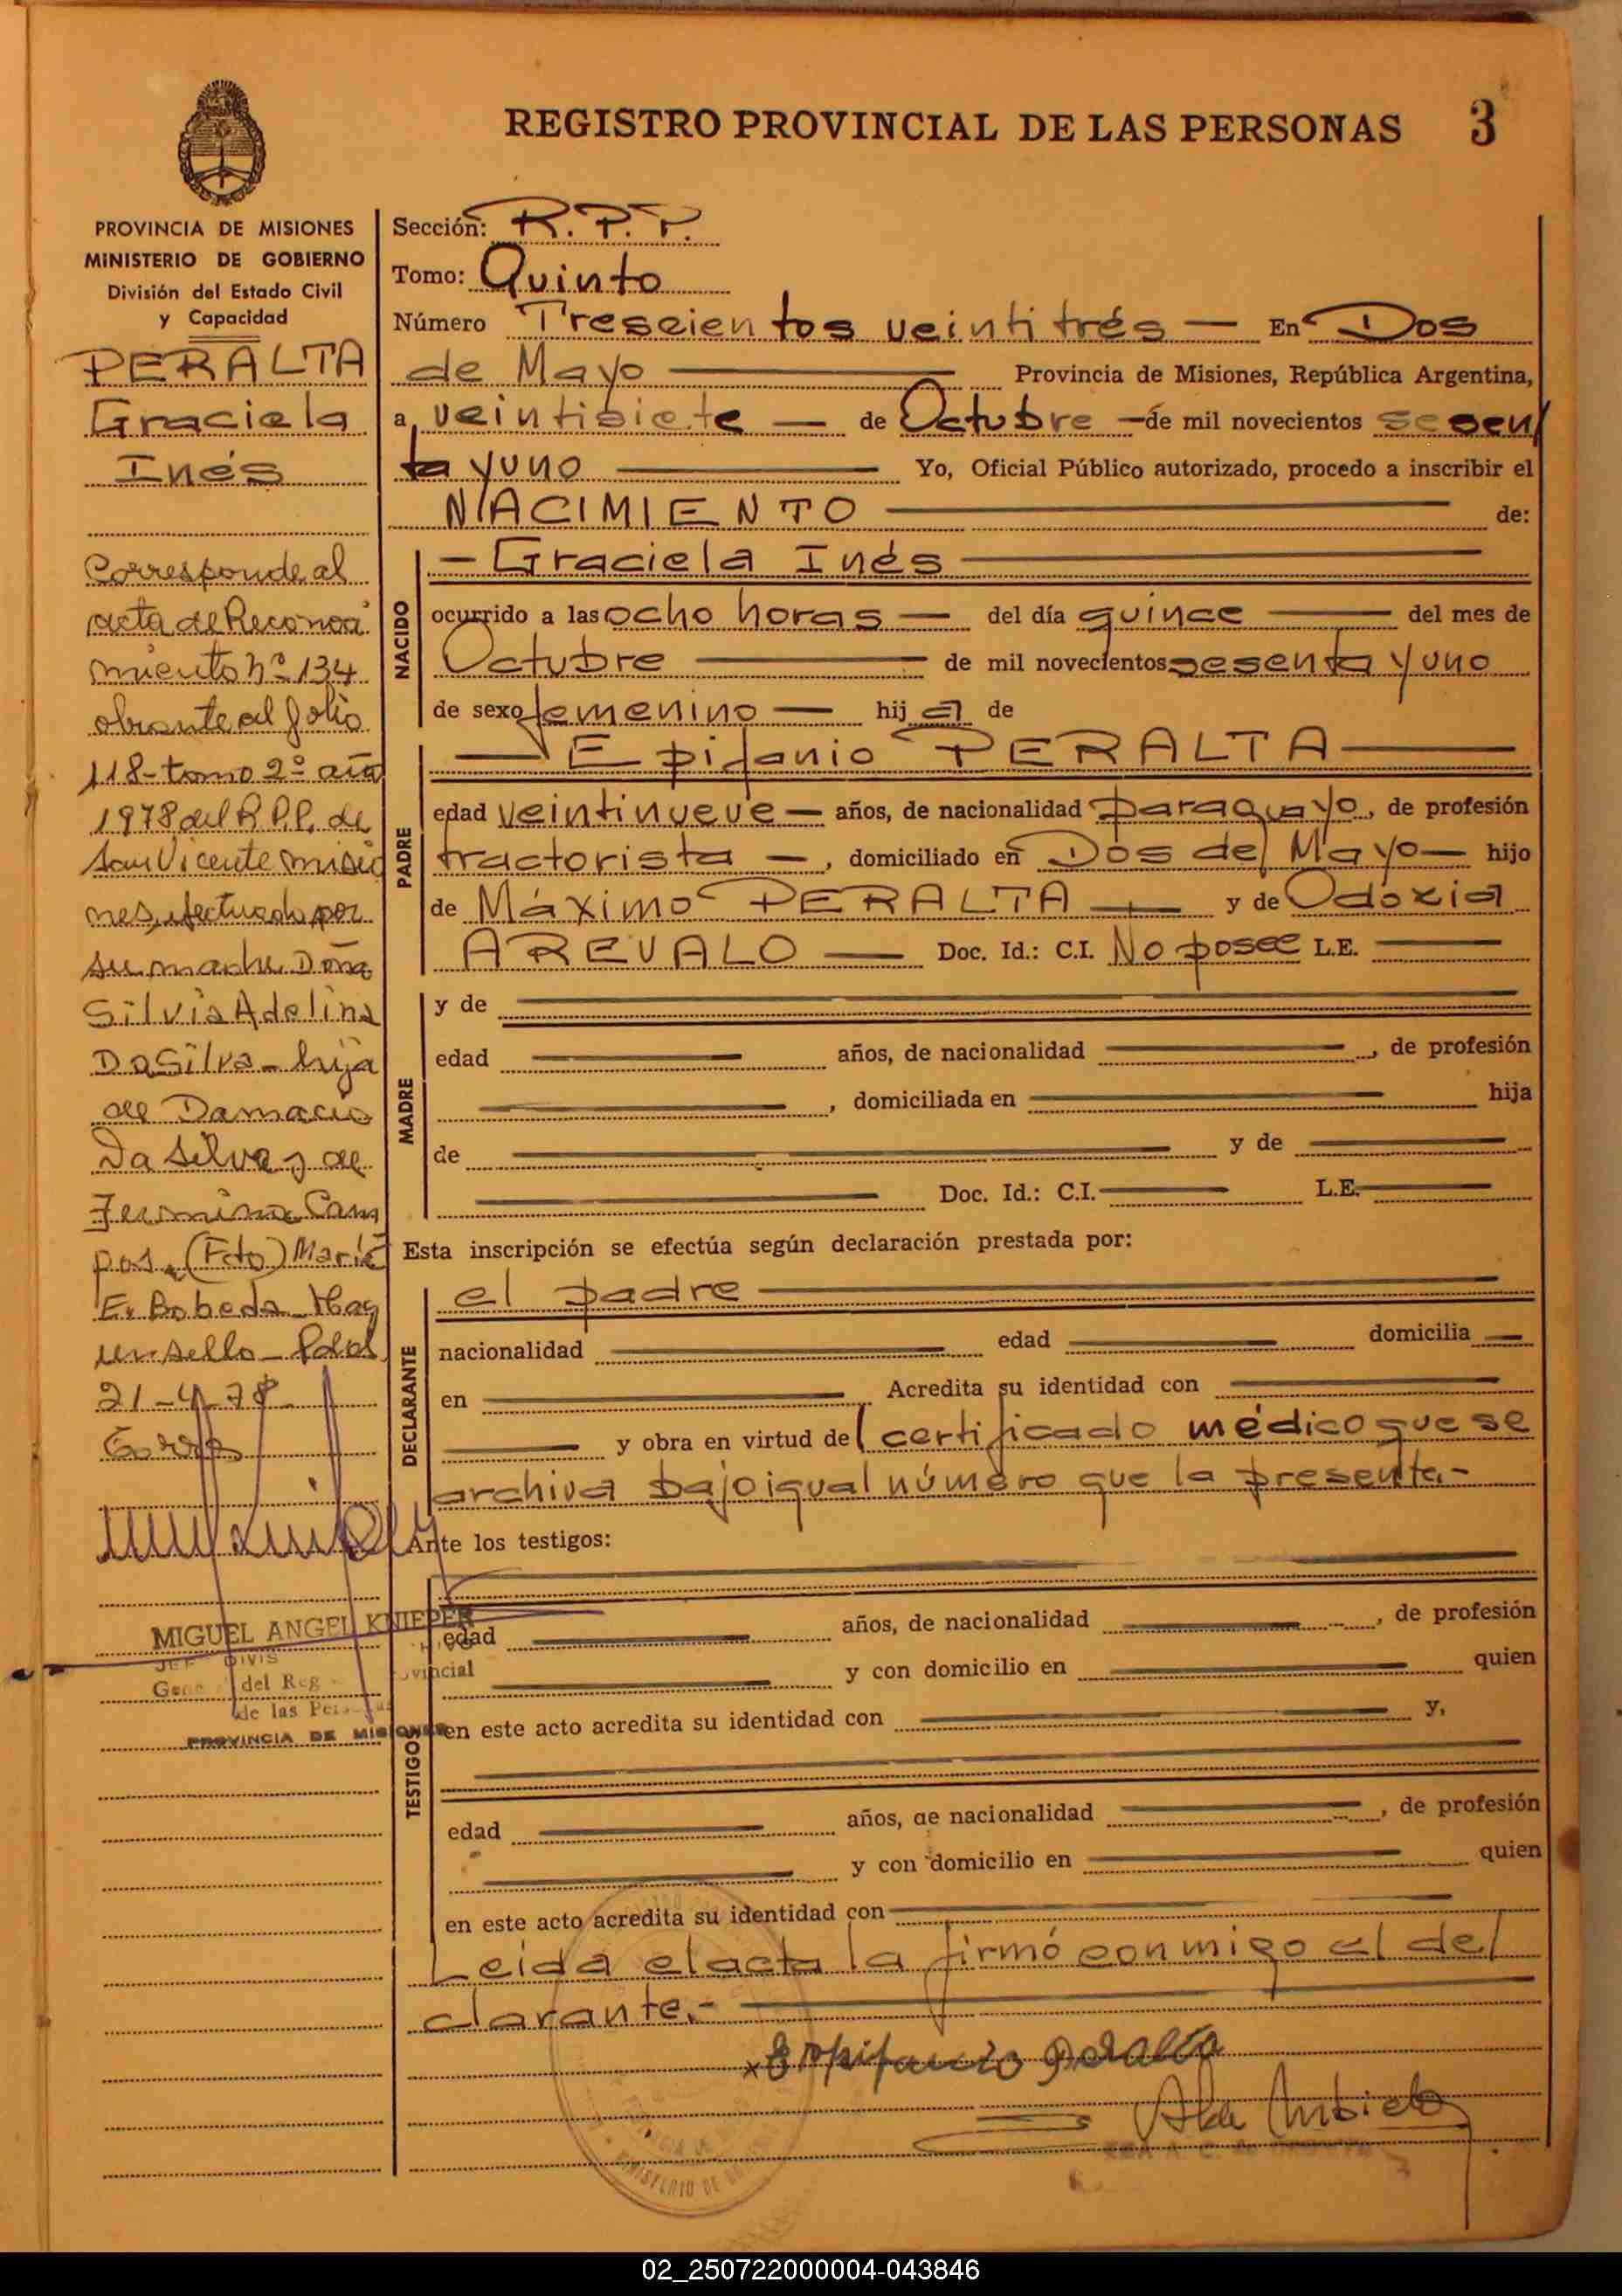 REGISTRO PROVINCIAL DE LAS PERSONAS 3
PROVINCIA DE MISIONES
MINISTERIO DE GOBIERNO
División del Estado Civil
y Capacidad
PERALTA
Graciela
Inés
Corresponde al
acta de Reconoci
miento nº 134
obrante al folio
118-tomo 2º año
1978 del R.P.P. de
San Vicente misio
nes, efectuado por
su madre Doña
Silvia Adelina
Da Silva - hija
de Damacio
Da Silva y de
Fermina Cam
pos. (Fdo) Maria
E. Bobeda - Hay
un sello - Pdas
21-4-78
MIGUEL ANGEL KNIEPER
JEF DIVIS
del Reg
de las Per
PROVINCIA DE MISIONES
Sección: R.P.P.
Tomo: Quinto
Número Trescientos veintitrés — En Dos
de Mayo — Provincia de Misiones, República Argentina,
a veintisiete — de Octubre — de mil novecientos sesen
ta y uno — Yo, Oficial Público autorizado, procedo a inscribir el
NACIMIENTO — de:
NACIDO
— Graciela Inés —
ocurrido a las ocho horas — del día quince — del mes de
Octubre — de mil novecientos sesenta y uno
de sexo femenino — hij a de
PADRE
— Epifanio PERALTA —
edad veintinueve — años, de nacionalidad paraguayo, de profesión
tractorista —, domiciliado en Dos de Mayo — hijo
de Máximo PERALTA — y de Odoxia
AREVALO — Doc. Id.: C.I. No posee L.E. —
MADRE
y de —
edad — años, de nacionalidad —, de profesión
—, domiciliada en — hija
de — y de —
— Doc. Id.: C.I. — L.E. —
Esta inscripción se efectúa según declaración prestada por:
DECLARANTE
el padre —
nacionalidad — edad — domicilia —
en — Acredita su identidad con —
— y obra en virtud del certificado médico que se
archiva bajo igual número que la presente.-
Ante los testigos:
TESTIGOS
edad — años, de nacionalidad —, de profesión
— y con domicilio en — quien
en este acto acredita su identidad con — y,
edad — años, de nacionalidad —, de profesión
— y con domicilio en — quien
en este acto acredita su identidad con —
Leida el acta la firmó conmigo el de
clarante.-
x Epifanio Peralta
02_250722000004-043846